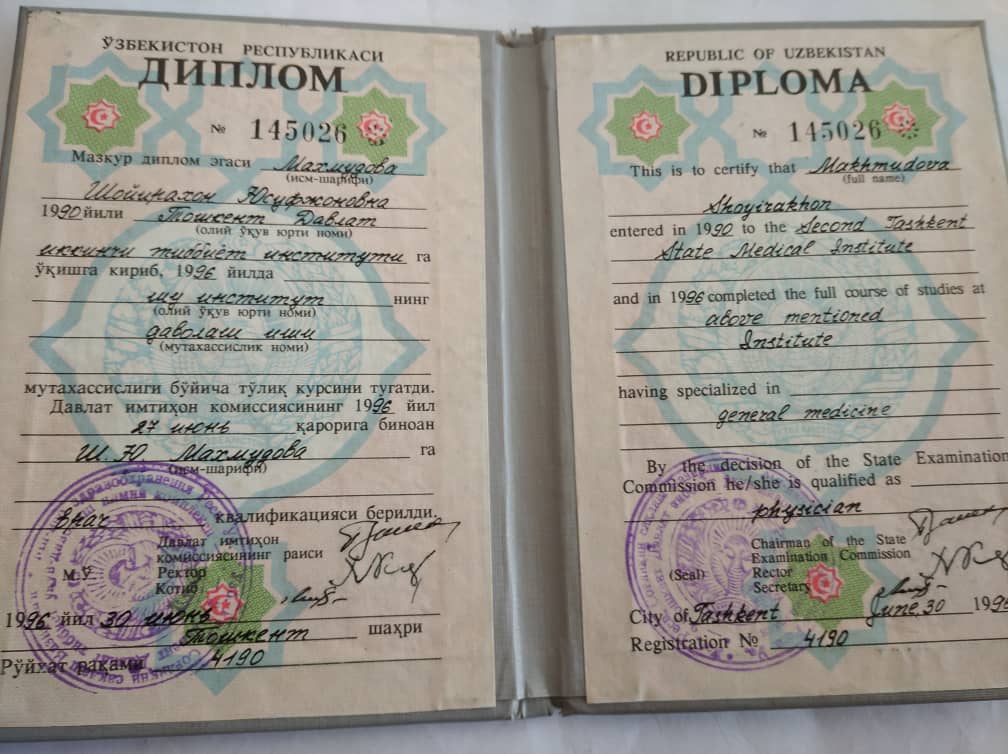 ЎЗБЕКИСТОН РЕСПУБЛИКАСИ
ДИПЛОМ
№ 145026
Мазкур диплом эгаси Махмудова
(исм-шарифи)
Шойирахон Юсуфжоновна
1990 йили Тошкент Давлат
(олий ўқув юрти номи)
иккинчи тиббиёт институти га
ўқишга кириб, 1996 йилда
шу институт нинг
(олий ўқув юрти номи)
даволаш иши
(мутахассислик номи)
мутахассислиги бўйича тўлиқ курсини тугатди.
Давлат имтиҳон комиссиясининг 1996 йил
27 июнь қарорига биноан
Ш. Ю. Махмудова га
(исм-шарифи)
врач квалификацияси берилди.
Давлат имтиҳон
комиссиясининг раиси
М.Ў. Ректор
Котиб
1996 йил 30 июнь
Тошкент шаҳри
Рўйхат рақами 4190
REPUBLIC OF UZBEKISTAN
DIPLOMA
№ 145026
This is to certify that Makhmudova
(full name)
Shoyirakhon
entered in 1990 to the Second Tashkent
State Medical Institute
and in 1996 completed the full course of studies at
above mentioned
Institute
having specialized in
general medicine
By the decision of the State Examination
Commission he/she is qualified as
physician
Chairman of the State
Examination Commission
(Seal) Rector
Secretary
City of Tashkent June 30 1996
Registration № 4190